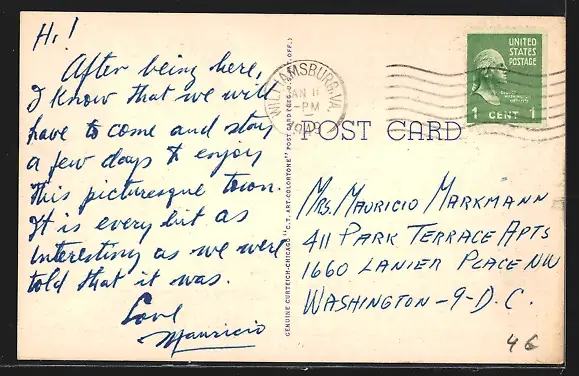 Hi!
After being here,
I know that we will
have to come and stay
a few days to enjoy
this picturesque town.
It is every bit as
interesting as we were
told that it was.
Love
Mauricio
GENUINE CURTEICH-CHICAGO "C.T. ART-COLORTONE" POST CARD (REG. U.S. PAT. OFF.)
WILLIAMSBURG, VA.
JAN 11
-PM
1949
UNITED
STATES
POSTAGE
1 CENT 1
POST CARD
Mrs. Mauricio Markmann
411 Park Terrace Apts
1660 Lanier Place NW
Washington-9-D.C.
46